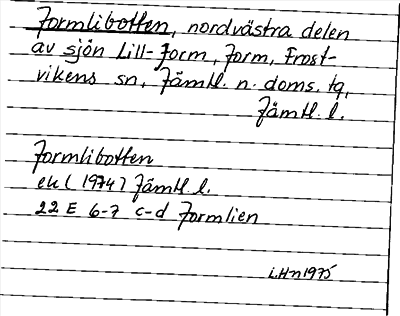 Jormlibotten, nordvästra delen
av sjön Lill-Jorm, Jorm, Frost-
vikens sn, Jämtl. n. doms. tg,
Jämtl. l.
Jormlibotten
ek (1974) Jämtl l.
22 E 6-7 c-d Jormlien
LHn1975